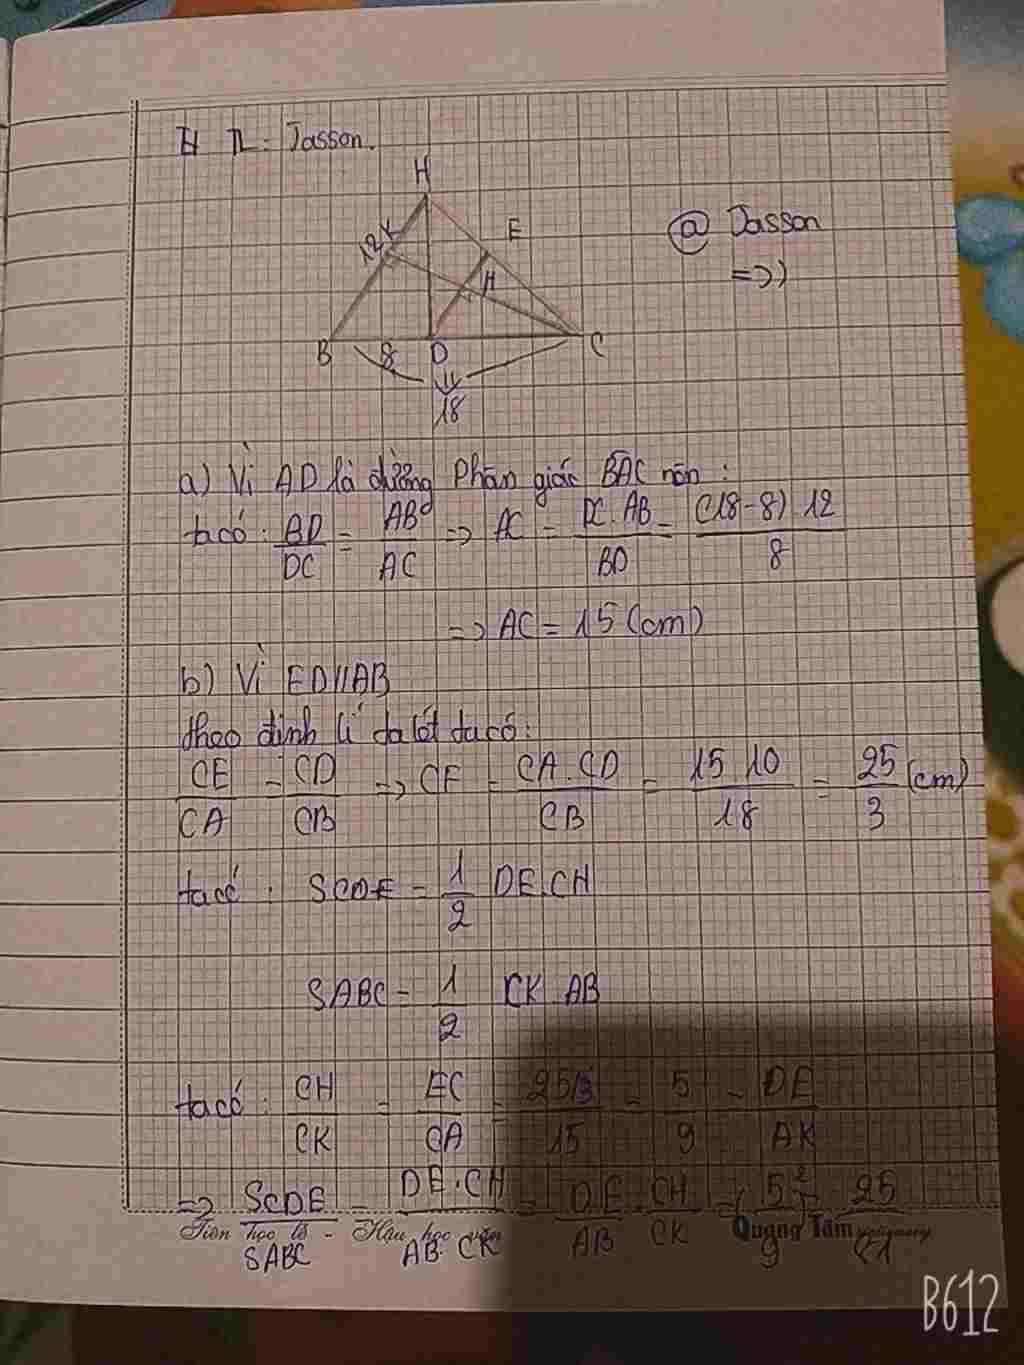 TL: Jasson.
H
@ Jasson
=>)
12 K
E
H
B 8 D C
18
a) Vì AD là đường phân giác BAC nên :
ta có : BD/DC = AB/AC => AC = DC.AB/BD = (18-8) 12/8
=> AC = 15 (cm)
b) Vì ED//AB
theo định lí ta lét ta có :
CE/CA = CD/CB => CE = CA.CD/CB = 15 10/18 = 25/3 (cm)
ta có : SCDE = 1/2 DE.CH
SABC = 1/2 CK AB
ta có : CH/CK = EC/CA = 25/3/15 = 5/9 = DE/AK
=> SCDE/SABC = DE.CH/AB.CK = DE/AB . CH/CK = (5/9)² = 25
Tiên học lễ - Hậu học văn
Quang Tâm
B612